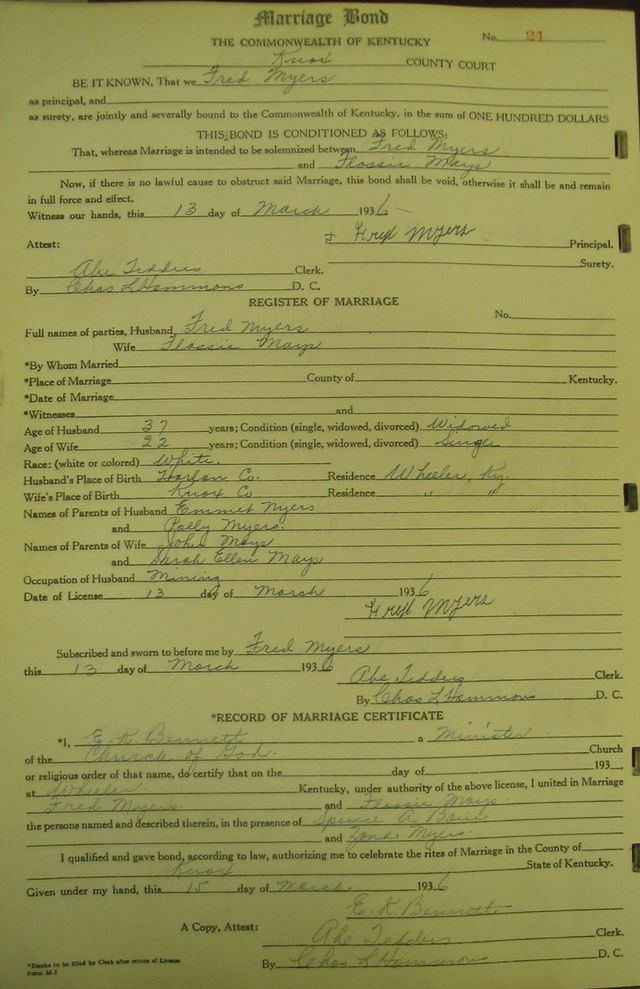 Marriage Bond
THE COMMONWEALTH OF KENTUCKY No. 21
Knox COUNTY COURT
BE IT KNOWN, That we Fred Myers
as principal, and
as surety, are jointly and severally bound to the Commonwealth of Kentucky, in the sum of ONE HUNDRED DOLLARS
THIS BOND IS CONDITIONED AS FOLLOWS:
That, whereas Marriage is intended to be solemnized between Fred Myers
and Flossie Mays
Now, if there is no lawful cause to obstruct said Marriage, this bond shall be void, otherwise it shall be and remain
in full force and effect.
Witness our hands, this 13 day of March 1936
Attest: Myers Principal.
Surety.
Abe Tedders Clerk.
By Chas L Hammons D. C.
REGISTER OF MARRIAGE
No.
Full names of parties, Husband Fred Myers
Wife Flossie Mays
*By Whom Married
*Place of Marriage County of Kentucky.
*Date of Marriage
*Witnesses and
Age of Husband 37 years; Condition (single, widowed, divorced) Widowed
Age of Wife 22 years; Condition (single, widowed, divorced) Single
Race: (white or colored) White.
Husband's Place of Birth Harlan Co. Residence Wheeler, Ky.
Wife's Place of Birth Knox Co Residence " "
Names of Parents of Husband Emmet Myers
and Polly Myers.
Names of Parents of Wife John Mays
and Sarah Ellen Mays
Occupation of Husband Mining
Date of License 13 day of March 1936
Myers
Subscribed and sworn to before me by Fred Myers
this 13 day of March 1936
Abe Tedders Clerk.
By Chas L Hammons D. C.
*RECORD OF MARRIAGE CERTIFICATE
*I, E. K. Bennett a Minister.
of the Church of God. Church
or religious order of that name, do certify that on the day of 193 .
at Wheeler Kentucky, under authority of the above license, I united in Marriage
Fred Myers and Flossie Mays
the persons named and described therein, in the presence of Spence A
and Myers.
I qualified and gave bond, according to law, authorizing me to celebrate the rites of Marriage in the County of
Knox State of Kentucky.
Given under my hand, this 15 day of March 1936
E. K. Bennett
A Copy, Attest: Abe Tedders Clerk.
By Chas L Hammons D. C.
*Blanks to be filled by Clerk after return of License
Form M-1